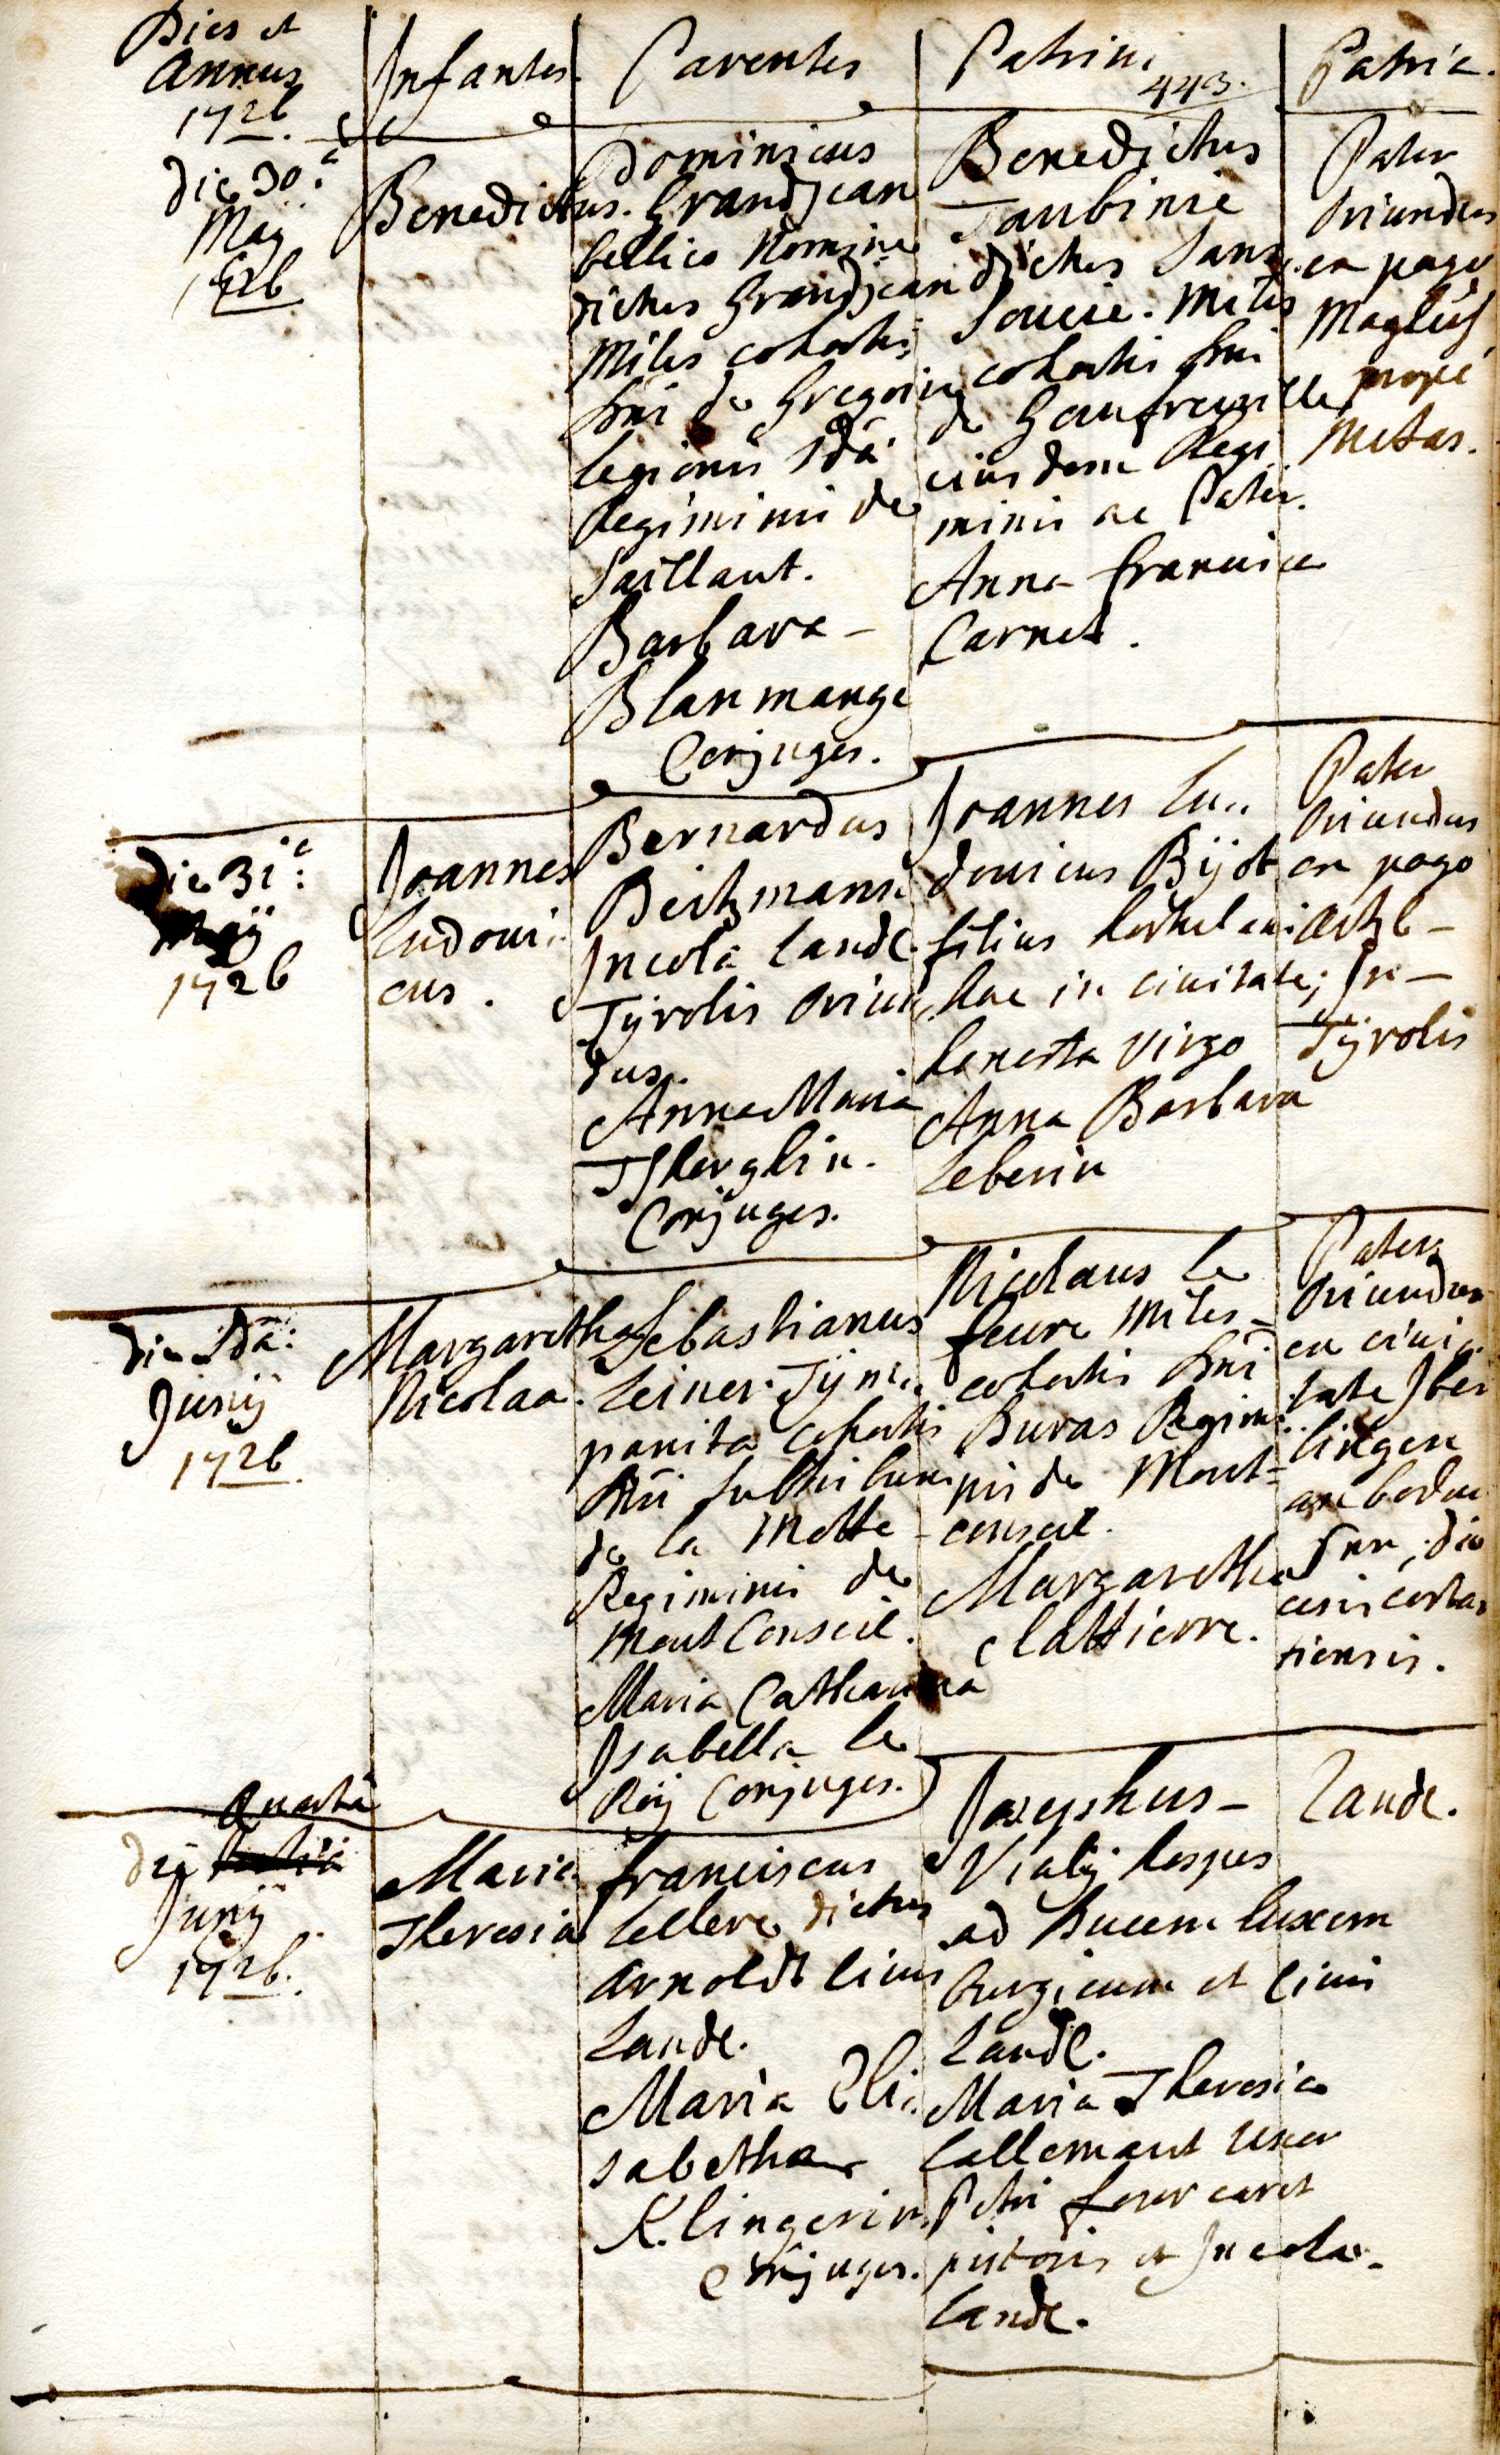 Dies et
Annus
1726
Infantes.
Parentes
Patrini
443.
Patria.
die 30.a
Maÿ
1726
Benedictus.
Dominicus
Grandjean
bellico Nomine
dictus Grandjean
Miles cohortis
Dni de Gregoire
legionis 2dâ
Regiminis de
Saillant.
Barbara -
Blanmange
Conjuges.
Benedictus
Taubinie
dictus Sans
Soucie. Miles
cohortis Dni
de Gonfreuille
eiusdem Regi
minis ac Pater.
Anna francisca
Carnet.
Pater
Oriundus
ex pago
prope
Metas.
die 31.a
Maÿ
1726
Joannes
Ludoui..
cus.
Bernardus
Beitzmann
Incola Landl.
Tÿrolis Oriun
dus.
Anna Maria
Conjuges.
Joannes Lu..
douicus Bijot
filius
hac in ciuitate;
honesta Virgo
Anna Barbara
Leberin
Pater
Oriundus
ex pago
In -
Tÿrolis
die 2dâ:
Junÿ
1726.
Margaretha
Nicolaa.
Sebastianus
Leiner. Tÿm..
panista cohortis
Dni
de la Motte
Regiminis de
Mont Conseil.
Maria Catharina
Isabella le
Roÿ Conjuges.
Nicolaus le
feure Miles
cohortis Dni
Buras Regimi
nis de Mont-
conseil.
Margaretha
Pater
Oriundus
ex ciui..
tate Jber
lingen
am boden
see, dio
cesis constan
tiensis.
Quartâ
die
Junÿ
1726.
Maria
Theresia
franciscus
Cellere dictus
Arnoldt ciuis
Landl.
Maria Eli..
sabetha
Klingerin
Conjuges.
Josephus -
Vialÿ hospes
ad Ducem Luxem
burgicum et Ciuis
Landl.
Maria Theresia
Lallemant Uxor
Petri
pistoris et Incolae
Landl.
Landl.